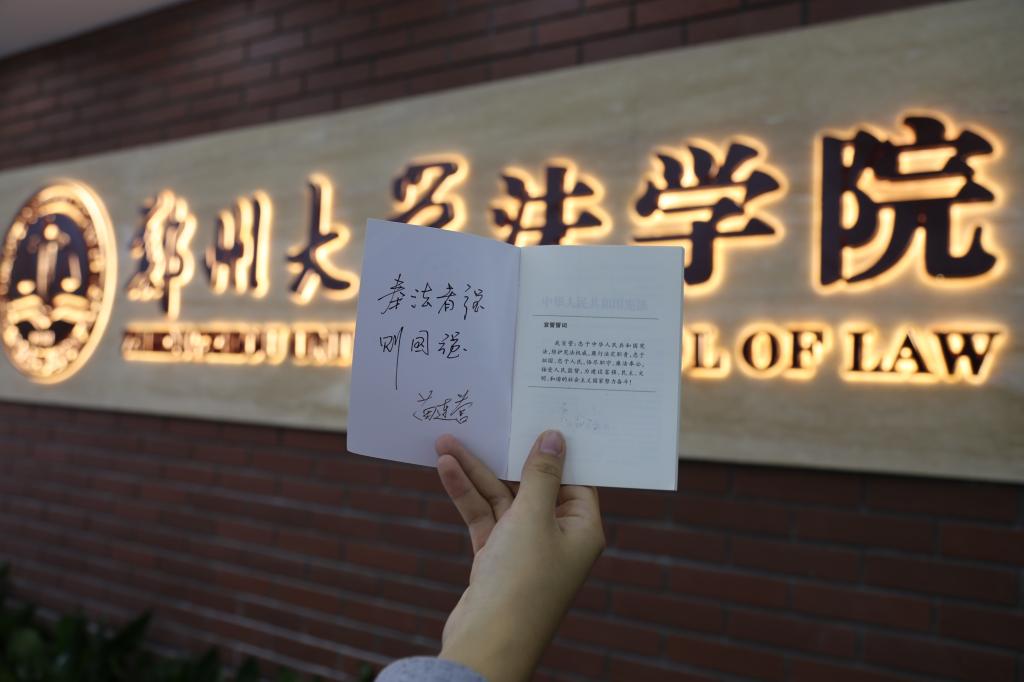 郑州大学法学院
ZHENGZHOU UNI L OF LAW
奉法者强
则国强
苗连营
中华人民共和国宪法
宣誓誓词
我宣誓：忠于中华人民共和国宪
法，维护宪法权威，履行法定职责，忠于
祖国、忠于人民，恪尽职守、廉洁奉公，
接受人民监督，为建设富强、民主、文
明、和谐的社会主义国家努力奋斗！